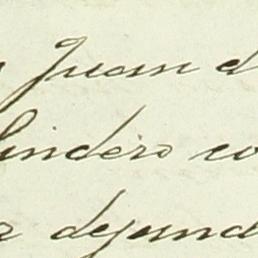 Juan d
lindero co
dejand